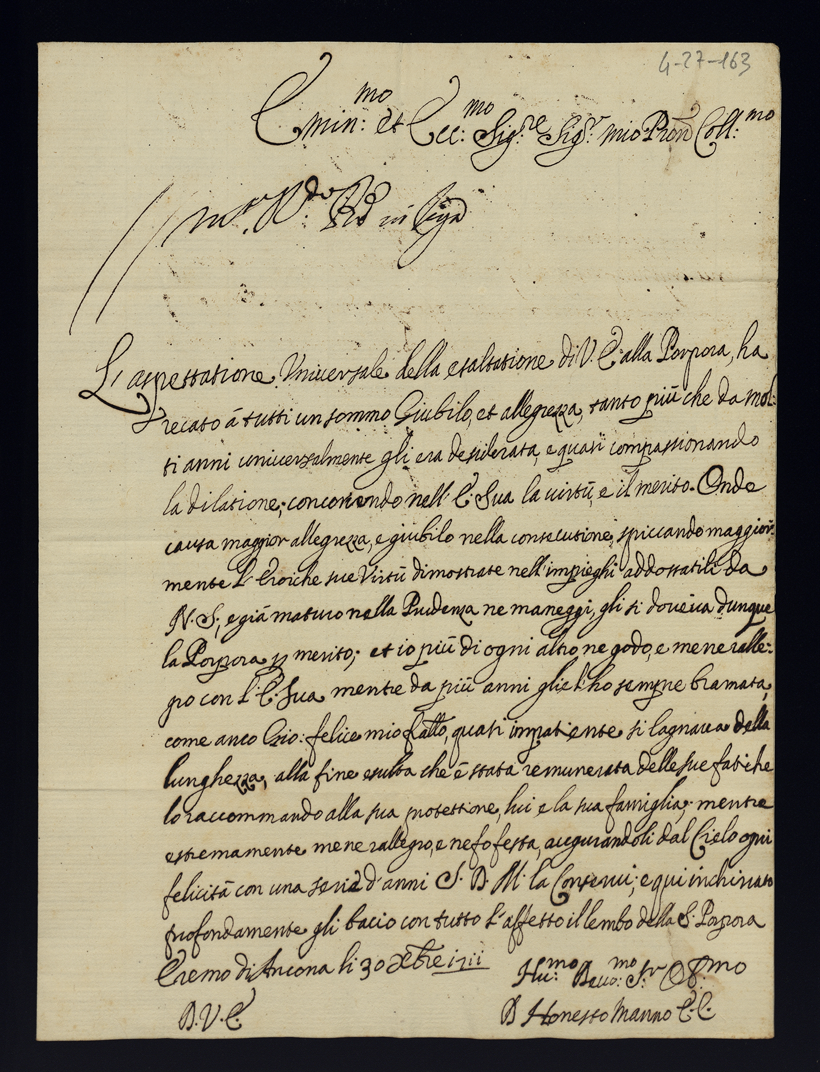 4-27-163
Emin:mo et Ecc:mo Sig:re Sig:r mio Pron Coll:mo
L'aspettatione Universale della esaltatione di V. E. alla Porpora, ha
recato à tutti un sommo Giubilo, et allegrezza, tanto più che da mol-
ti anni universalmente gli era desiderata, e quasi compassionando
la dilatione; concorrendo nell'E. Sua la virtù, e il merito. Onde
causa maggior allegrezza, e giubilo nella consecutione, spiccando maggior-
mente l'Eroiche sue Virtù dimostrate nell'impieghi addossatili da
N. S; e già maturo nella Prudenza ne maneggi, gli si doveva dunque
la Porpora p merito; et io più di ogni altro ne godo, e me ne ralle-
gro con l'E. Sua mentre da più anni gliel'ho sempre bramata,
come anco Gio: felice mio fratto, quasi impatiente si lagnava della
lunghezza, alla fine esulta che è stata remunerata delle sue fatiche
lo raccommando alla sua protettione, lui e la sua famiglia; mentre
estremamente me ne rallegro, e ne fo festa, augurandoli dal Cielo ogni
felicità con una serie d'anni S. D. M. la Conservi; e qui inchinato
profondamente gli bacio con tutto l'affetto il lembo della S. Porpora
Eremo di Ancona li 30 Xbre 1711
Hu:mo Devo:mo Sr Ob:mo
D. V. E.
D Honesto Manno E. C.